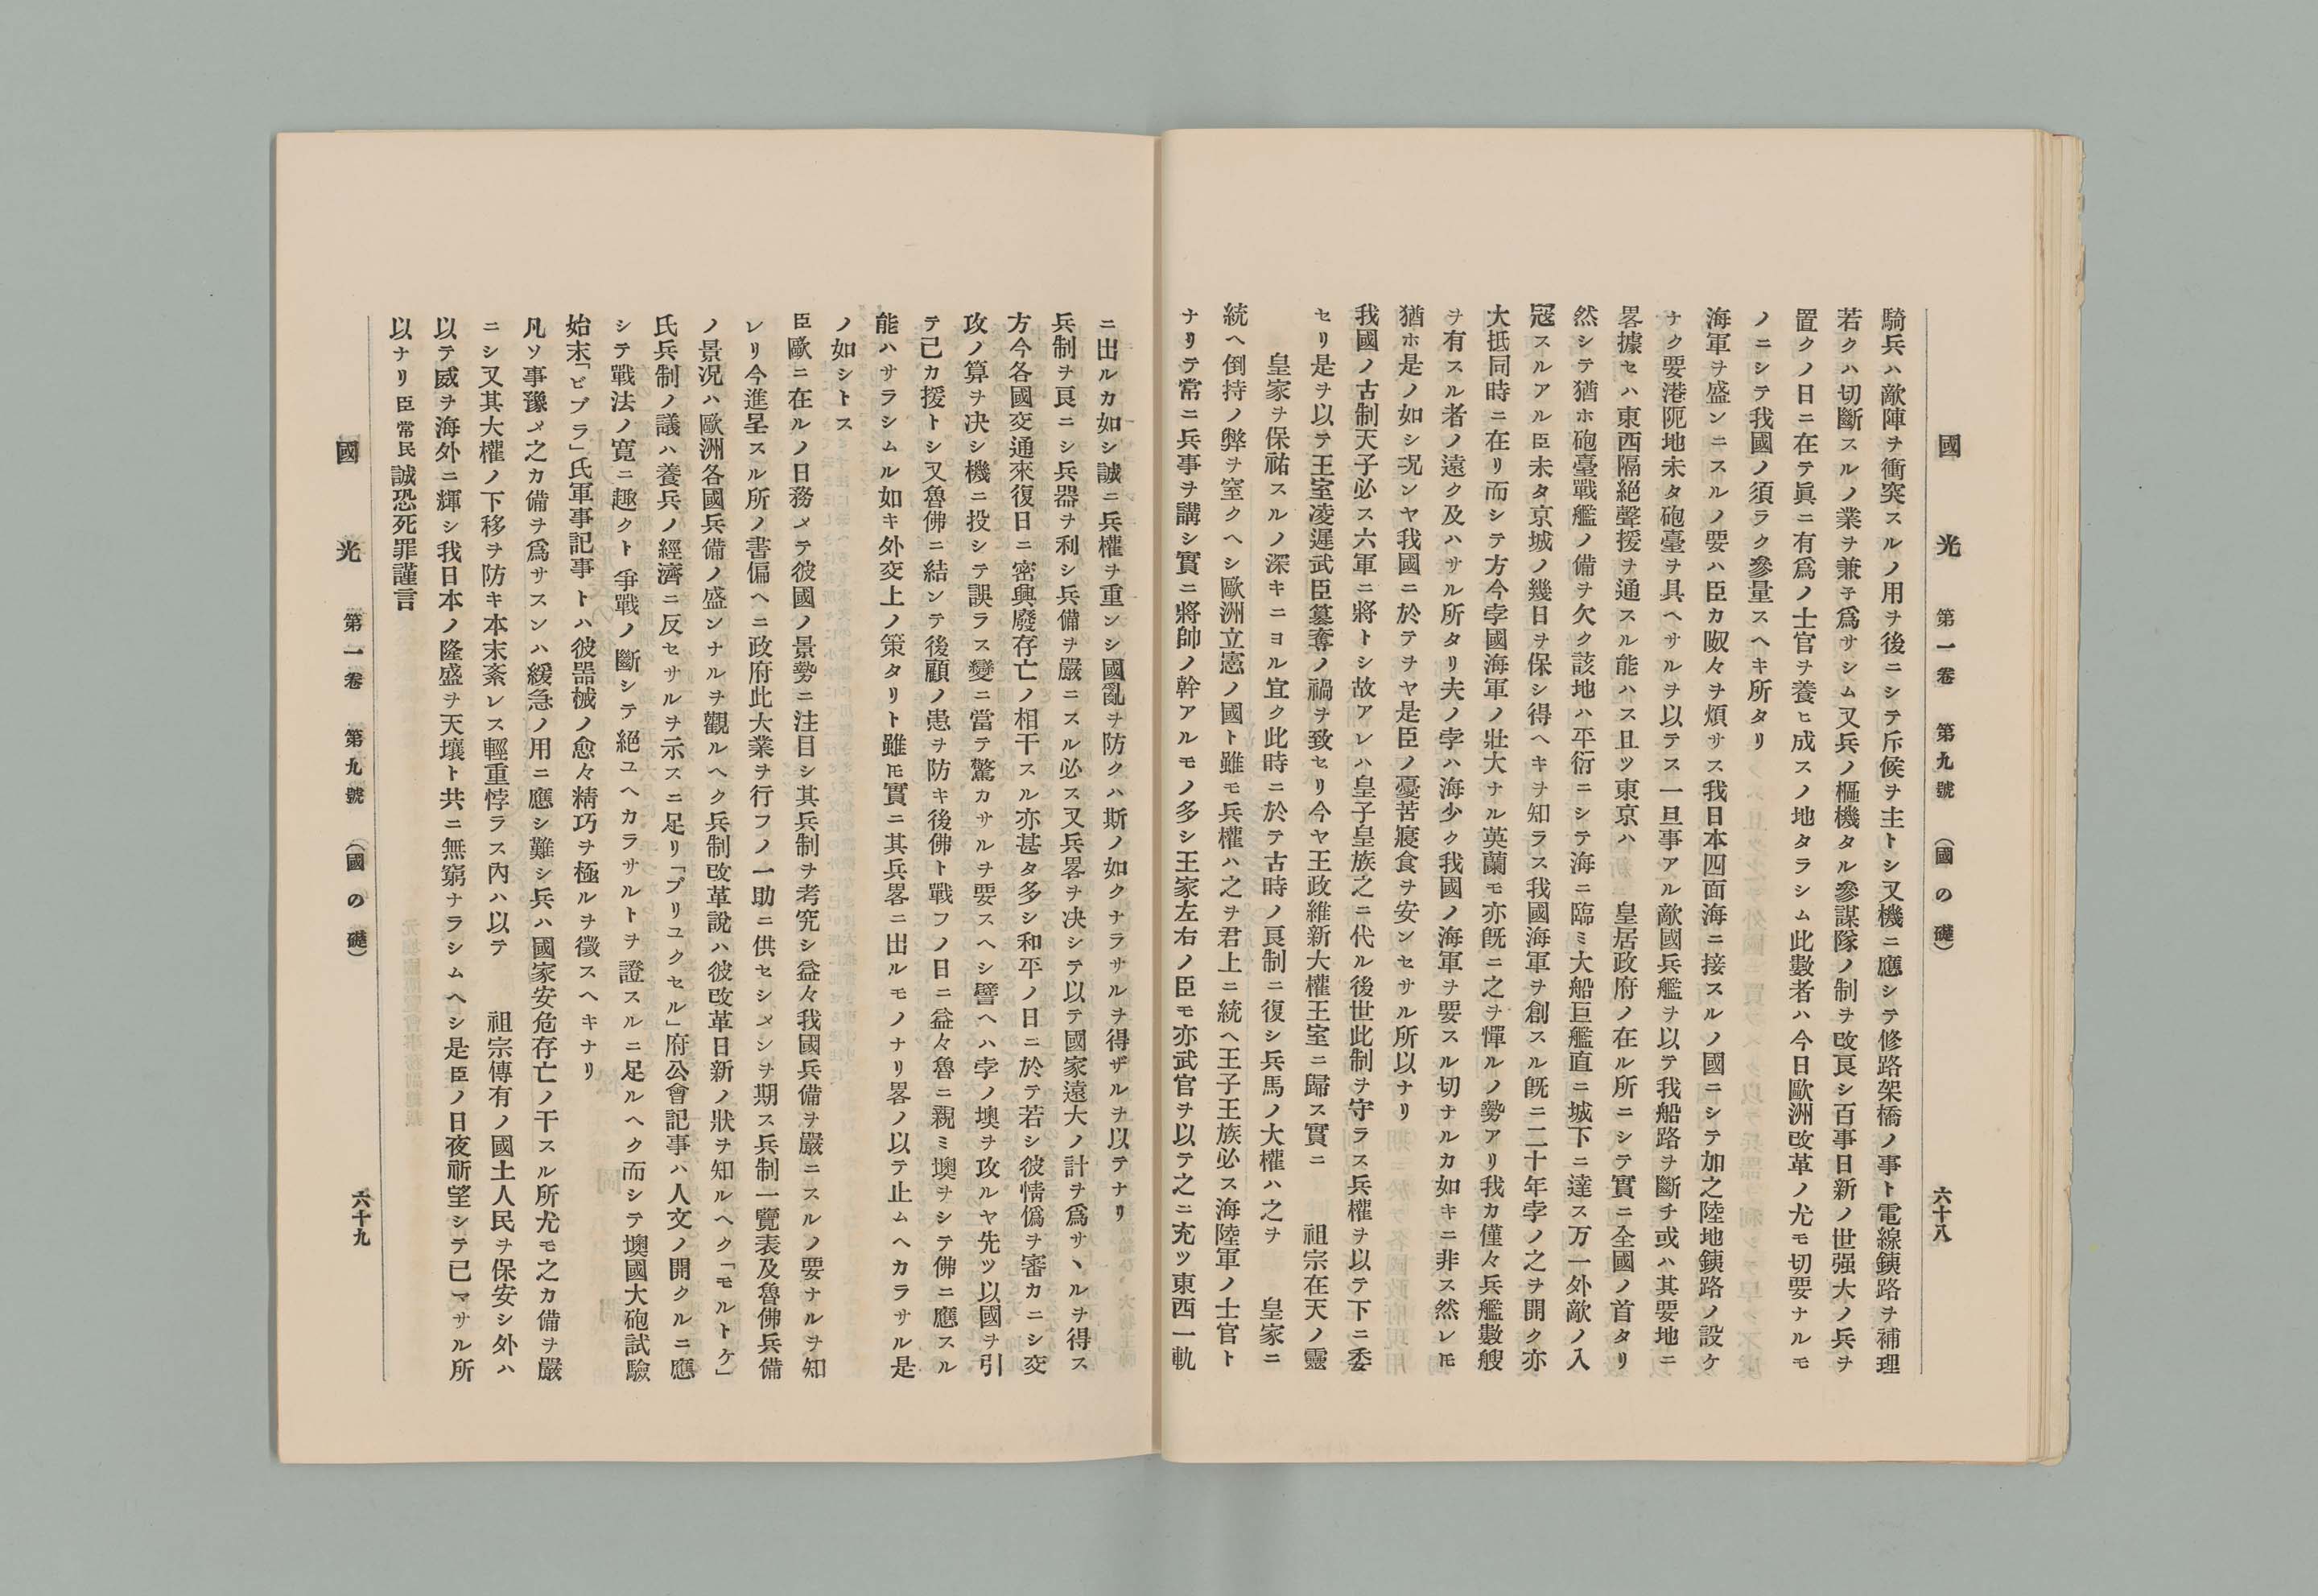 國光 第一卷 第九號 (國の礎) 六十八
騎兵ハ敵陣ヲ衝突スルノ用ヲ後ニシテ斥候ヲ主トシ又機ニ應シテ修路架橋ノ事ト電線銕路ヲ補理
若クハ切斷スルノ業ヲ兼子爲サシム又兵ノ樞機タル參謀隊ノ制ヲ改良シ百事日新ノ世强大ノ兵ヲ
置クノ日ニ在テ眞ニ有爲ノ士官ヲ養ヒ成スノ地タラシム此數者ハ今日歐洲改革ノ尤モ切要ナルモ
ノニシテ我國ノ須ラク參量スヘキ所タリ
海軍ヲ盛ンニスルノ要ハ臣カ呶々ヲ煩サス我日本四面海ニ接スルノ國ニシテ加之陸地銕路ノ設ケ
ナク要港阨地未タ砲臺ヲ具ヘサルヲ以テス一旦事アル敵國兵艦ヲ以テ我船路ヲ斷チ或ハ其要地ニ
畧據セハ東西隔絶聲援ヲ通スル能ハス且ツ東京ハ 皇居政府ノ在ル所ニシテ實ニ全國ノ首タリ
然シテ猶ホ砲臺戰艦ノ備ヲ欠ク該地ハ平衍ニシテ海ニ臨ミ大船巨艦直ニ城下ニ達ス万一外敵ノ入
冦スルアル臣未タ京城ノ幾日ヲ保シ得ヘキヲ知ラス我國海軍ヲ創スル旣ニ二十年孛ノ之ヲ開ク亦
大抵同時ニ在リ而シテ方今孛國海軍ノ壯大ナル英蘭モ亦旣ニ之ヲ憚ルノ勢アリ我カ僅々兵艦數艘
ヲ有スル者ノ遠ク及ハサル所タリ夫ノ孛ハ海少ク我國ノ海軍ヲ要スル切ナルカ如キニ非ス然レ𪜈
猶ホ是ノ如シ况ンヤ我國ニ於テヲヤ是臣ノ憂苦寢食ヲ安ンセサル所以ナリ
我國ノ古制天子必ス六軍ニ將トシ故アレハ皇子皇族之ニ代ル後世此制ヲ守ラス兵權ヲ以テ下ニ委
セリ是ヲ以テ王室凌遲武臣簒奪ノ禍ヲ致セリ今ヤ王政維新大權王室ニ歸ス實ニ 祖宗在天ノ靈
皇家ヲ保祐スルノ深キニヨル宜ク此時ニ於テ古時ノ良制ニ復シ兵馬ノ大權ハ之ヲ 皇家ニ
統ヘ倒持ノ弊ヲ窒クヘシ歐洲立憲ノ國ト雖モ兵權ハ之ヲ君上ニ統ヘ王子王族必ス海陸軍ノ士官ト
ナリテ常ニ兵事ヲ講シ實ニ將帥ノ幹アルモノ多シ王家左右ノ臣モ亦武官ヲ以テ之ニ充ツ東西一軌
ニ出ルカ如シ誠ニ兵權ヲ重ンシ國亂ヲ防クハ斯ノ如クナラサルヲ得ザルヲ以テナリ
兵制ヲ良ニシ兵器ヲ利シ兵備ヲ嚴ニスル必ス又兵畧ヲ決シテ以テ國家遠大ノ計ヲ爲サヽルヲ得ス
方今各國交通來復日ニ密興廢存亡ノ相干スル亦甚タ多シ和平ノ日ニ於テ若シ彼情僞ヲ審カニシ交
攻ノ算ヲ決シ機ニ投シテ誤ラス變ニ當テ驚カサルヲ要スヘシ譬ヘハ孛ノ墺ヲ攻ルヤ先ツ以國ヲ引
テ己カ援トシ又魯佛ニ結ンテ後顧ノ患ヲ防キ後佛ト戰フノ日ニ益々魯ニ親ミ墺ヲシテ佛ニ應スル
能ハサラシムル如キ外交上ノ策タリト雖𪜈實ニ其兵畧ニ出ルモノナリ畧ノ以テ止ムヘカラサル是
ノ如シトス
臣歐ニ在ルノ日務メテ彼國ノ景勢ニ注目シ其兵制ヲ考究シ益々我國兵備ヲ嚴ニスルノ要ナルヲ知
レリ今進呈スル所ノ書偏ヘニ政府此大業ヲ行フノ一助ニ供セシメンヲ期ス兵制一覽表及魯佛兵備
ノ景況ハ歐洲各國兵備ノ盛ンナルヲ觀ルヘク兵制改革說ハ彼改革日新ノ狀ヲ知ルヘク「モルトケ」
氏兵制ノ議ハ養兵ノ經濟ニ反セサルヲ示スニ足リ「ブリユクセル」府公會記事ハ人文ノ開クルニ應
シテ戰法ノ寬ニ趣クト爭戰ノ斷シテ絕ユヘカラサルトヲ證スルニ足ルヘク而シテ墺國大砲試驗
始末「ビブラ」氏軍事記事トハ彼器械ノ愈々精巧ヲ極ルヲ徵スヘキナリ
凡ソ事豫メ之カ備ヲ爲サスンハ緩急ノ用ニ應シ難シ兵ハ國家安危存亡ノ干スル所尤モ之カ備ヲ嚴
ニシ又其大權ノ下移ヲ防キ本末紊レス輕重悖ラス內ハ以テ 祖宗傳有ノ國土人民ヲ保安シ外ハ
以テ威ヲ海外ニ輝シ我日本ノ隆盛ヲ天壤ト共ニ無窮ナラシムヘシ是臣ノ日夜祈望シテ已マサル所
以ナリ臣常民誠恐死罪謹言
國光 第一卷 第九號 (國の礎) 六十九